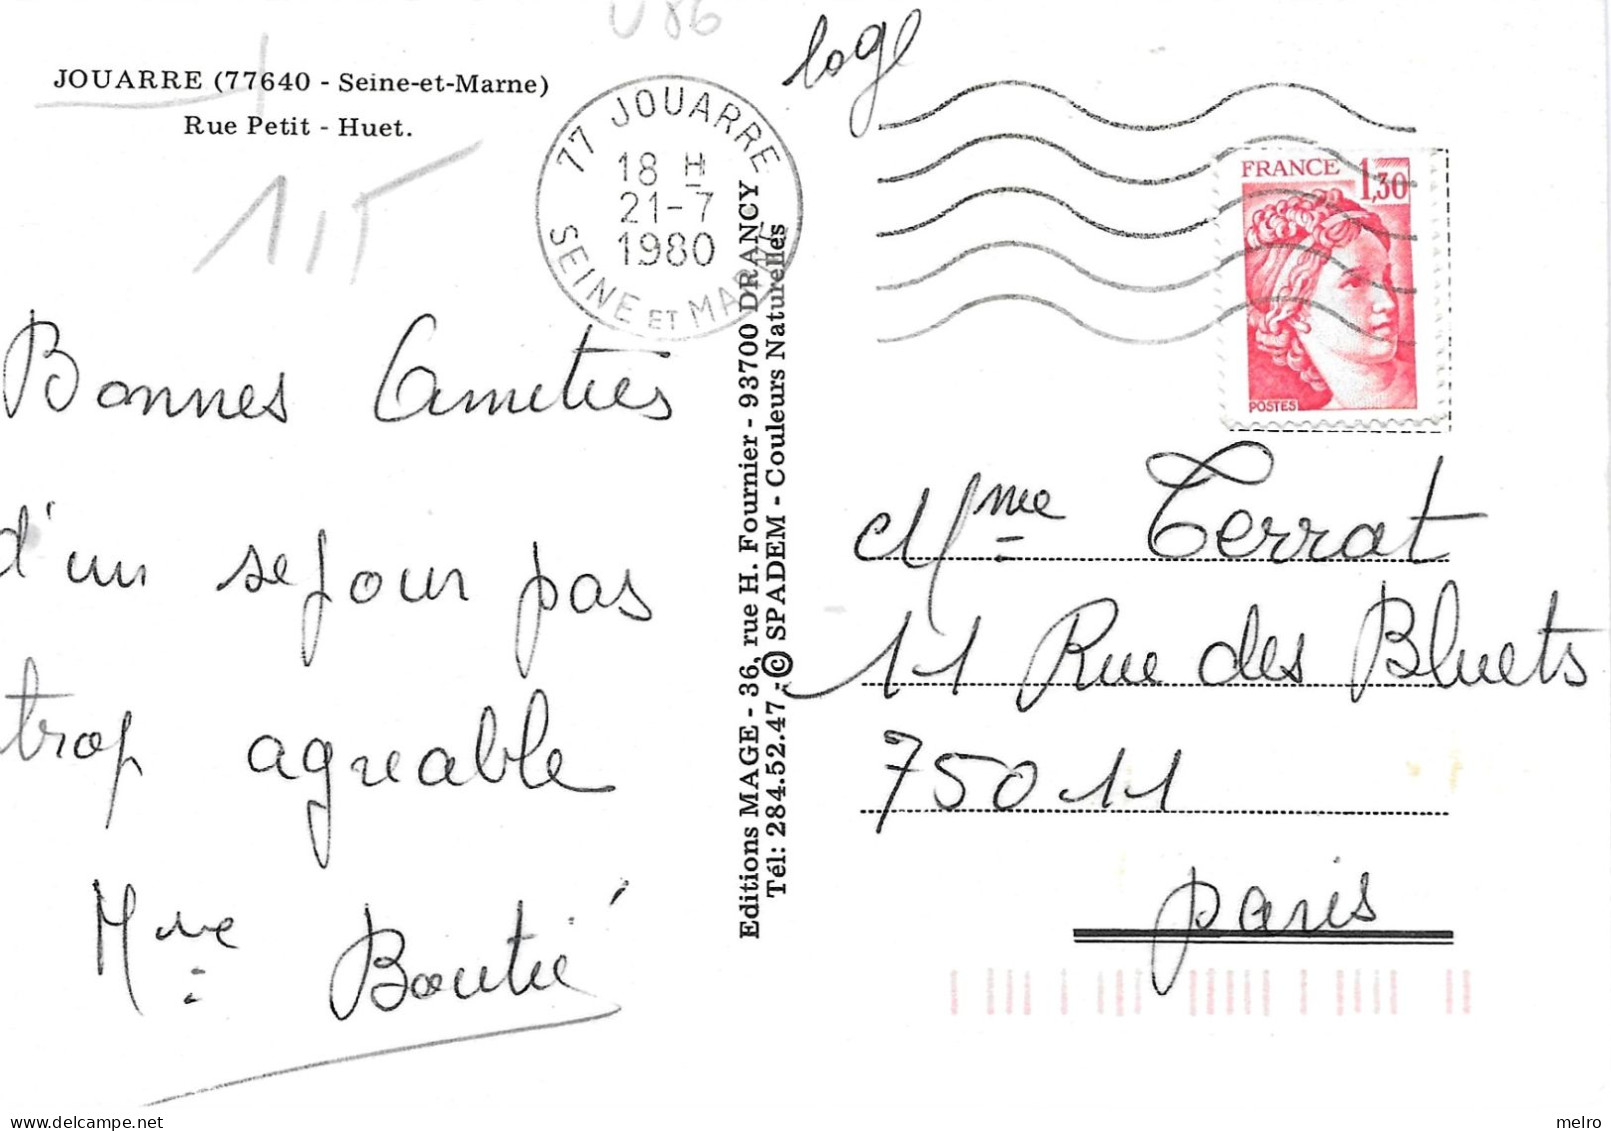 U 86
JOUARRE (77640 - Seine-et-Marne)
Rue Petit - Huet.
1,5
77 JOUARRE
18 H
21-7
1980
SEINE ET MARNE
loge
FRANCE
1,30
POSTES
Bonnes Amitiés
d'un sejour pas
trop agreable
Mme Boutié
Editions MAGE - 36, rue H. Fournier - 93700 DRANCY
Tél: 284.52.47 - © SPADEM - Couleurs Naturelles
Mme Terrat
11 Rue des Bluets
75011
paris
melro
delcampe.net